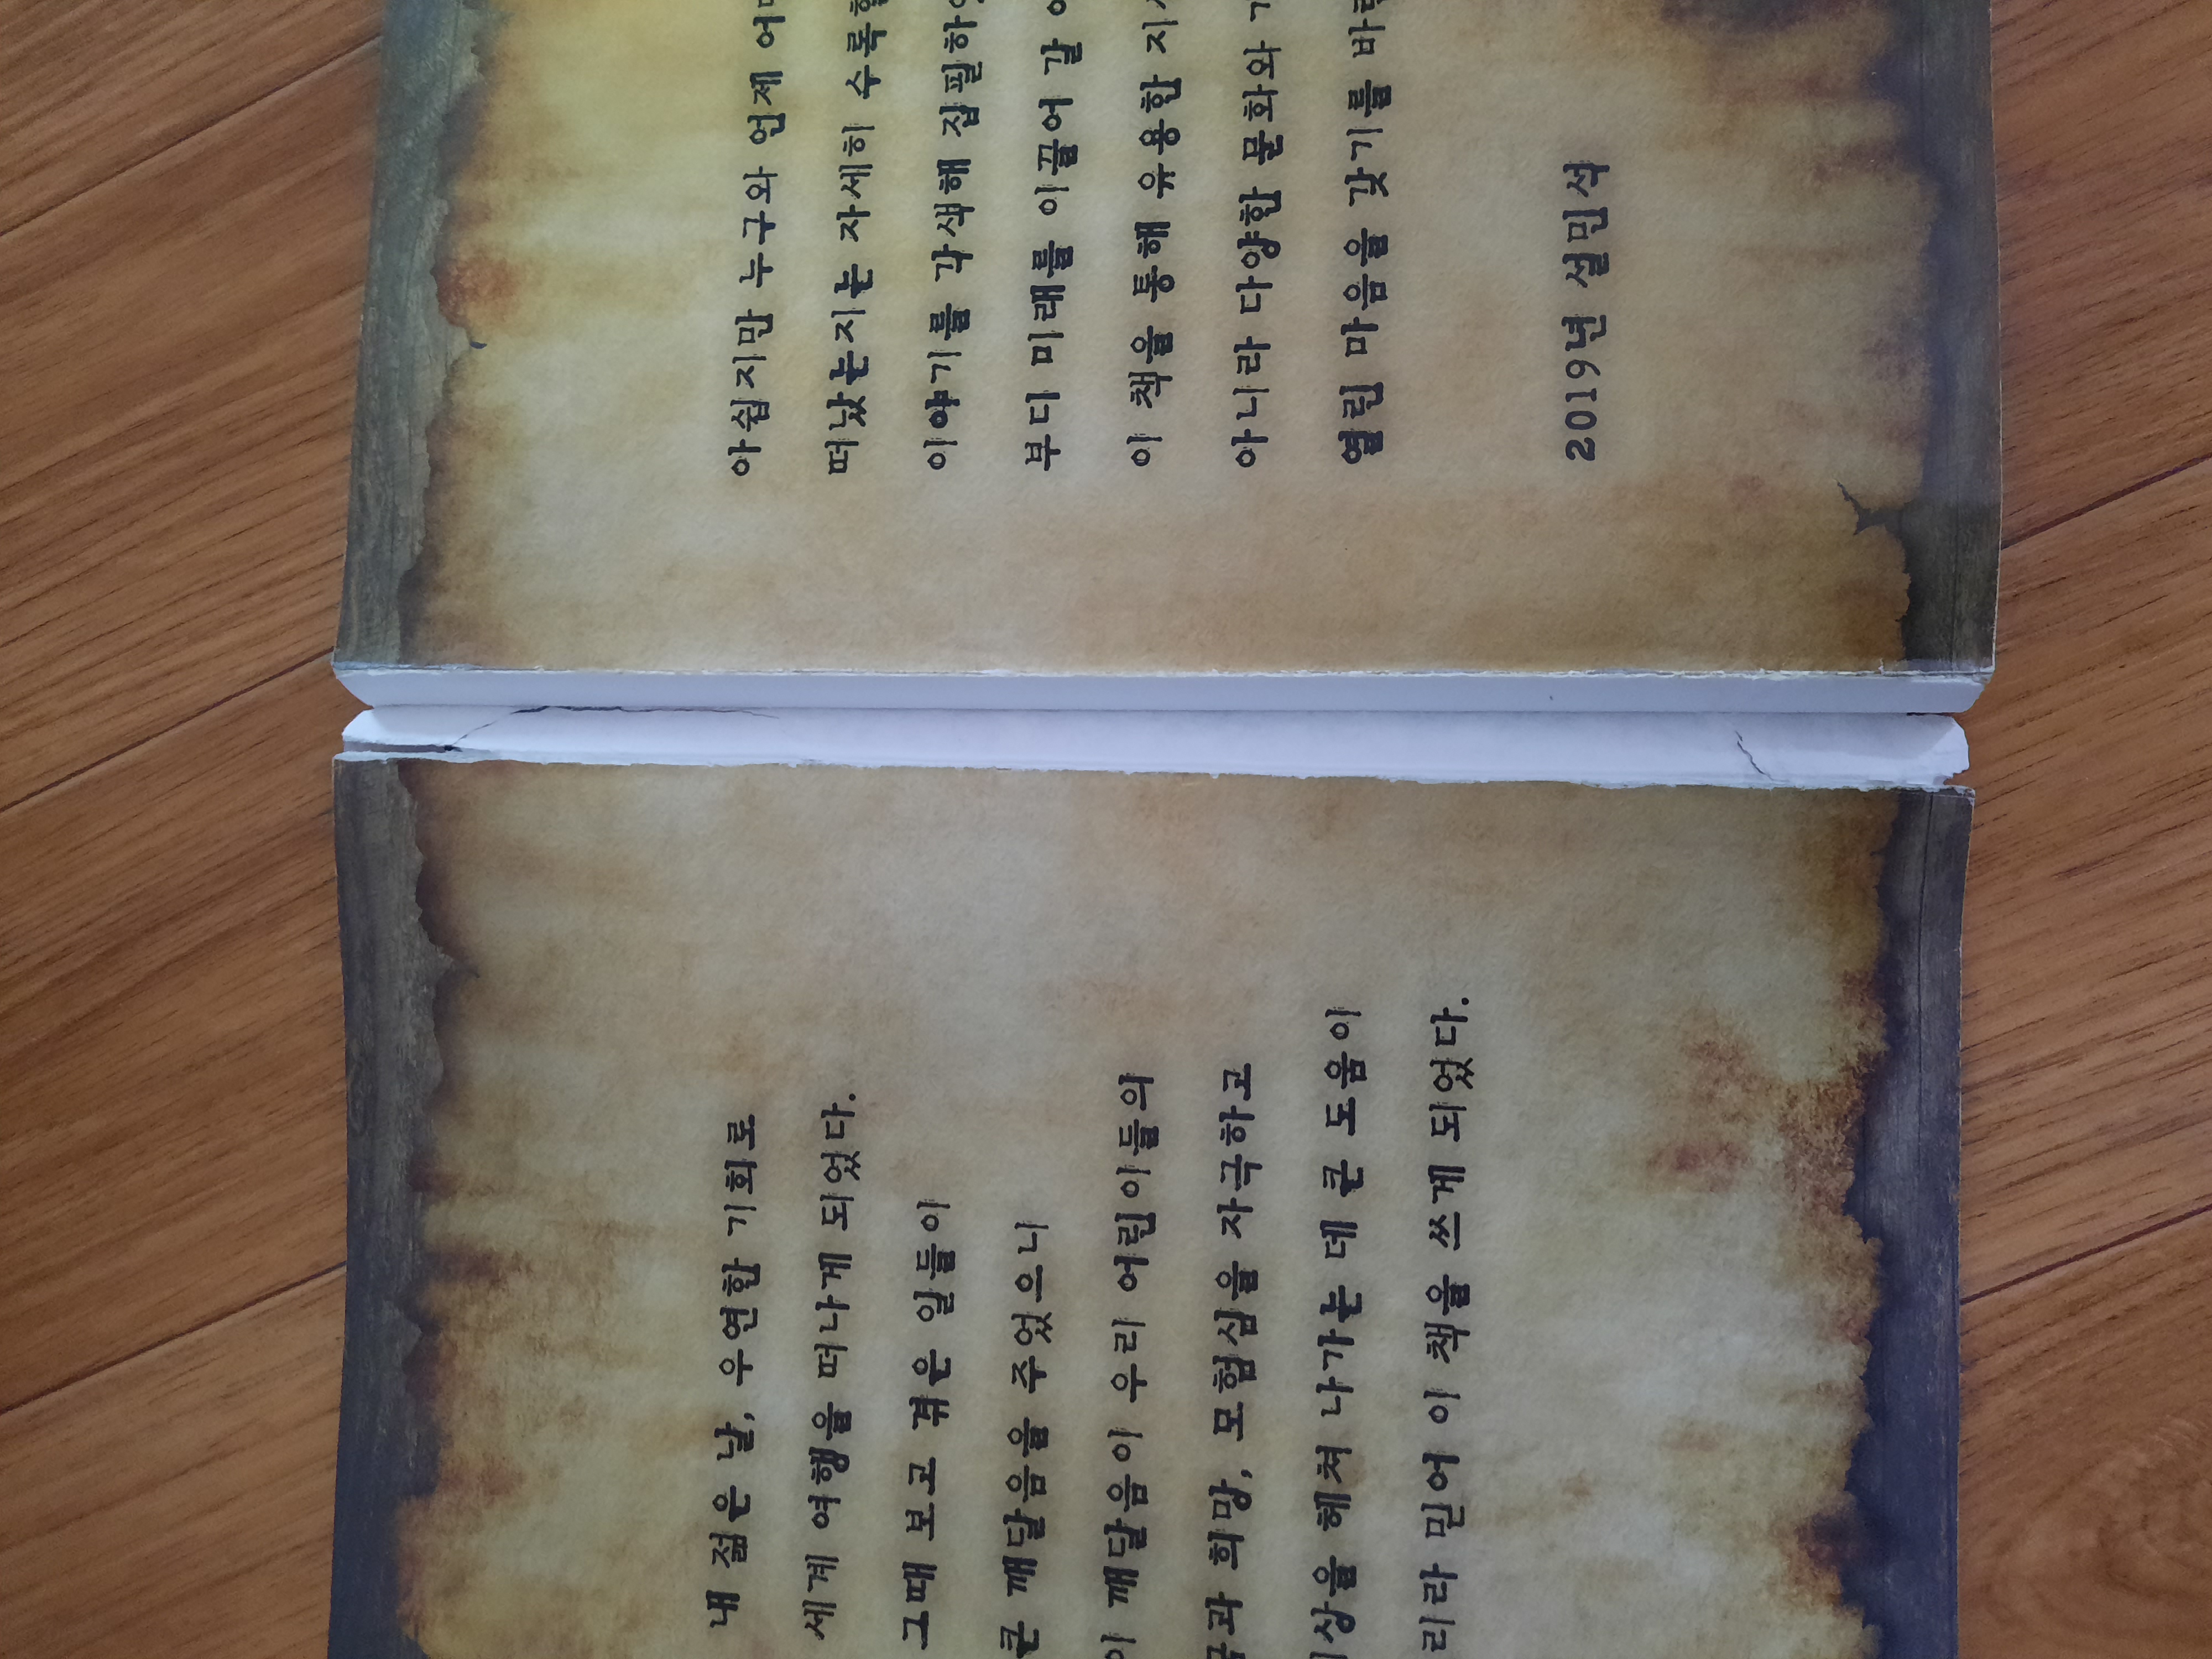 내 젊은 날, 우연한 기회로
세계 여행을 떠나게 되었다.
그때 보고 겪은 일들이
큰 깨달음을 주었으니
이 깨달음이 우리 어린이들의
희망, 모험심을 자극하고
헤쳐 나가는 데 큰 도움이
리라 믿어 이 책을 쓰게 되었다.
아쉽지만 누구와 언제
떠났는지는 자세히
이야기를 각색해
부디 미래를 이끌어 갈
이 책을 통해 유용한
아니라 다양한 문화와
열린 마음을 갖기를
2019년 설민석